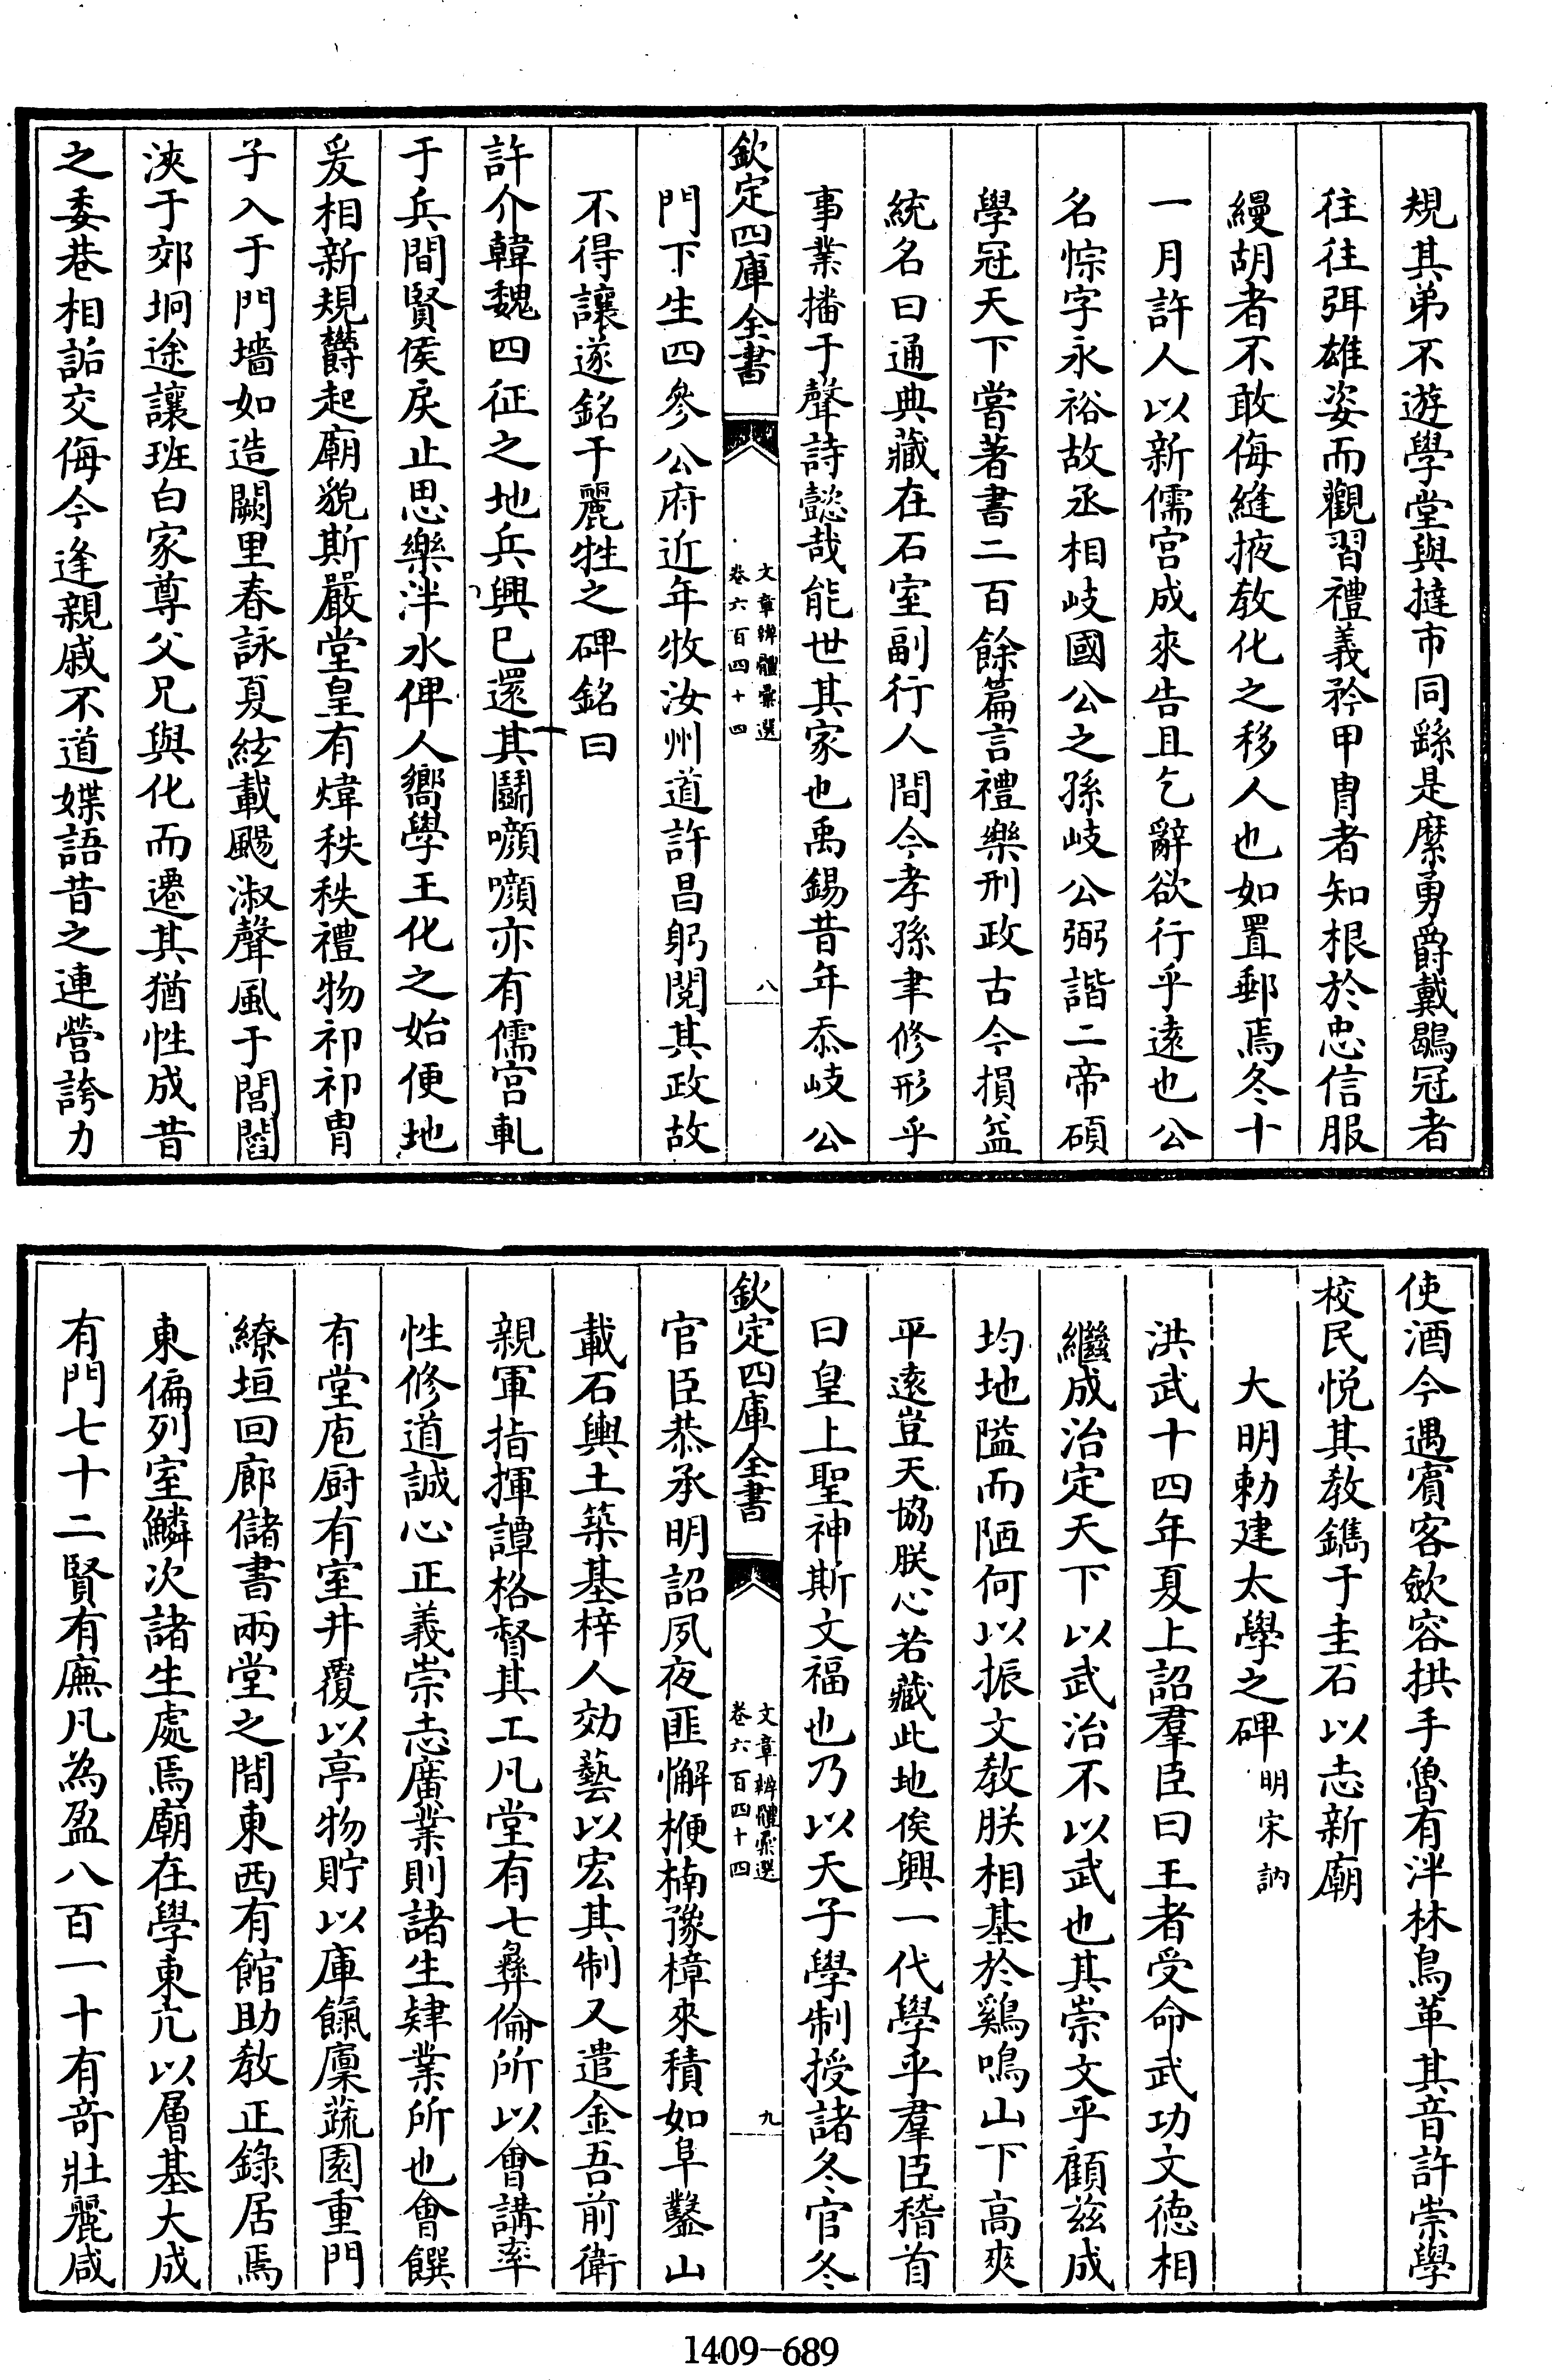 規其弟不遊學堂與撻市同繇是縻勇爵戴鶡冠者
往往弭雄姿而觀習禮義矜甲胄者知根於忠信服
縵胡者不敢侮縫掖教化之移人也如置郵焉冬十
一月許人以新儒宫成來告且乞辭欲行乎遠也公
名悰字永裕故丞相岐國公之孫岐公弼諧二帝碩
學冠天下嘗著書二百餘篇言禮樂刑政古今損益
統名曰通典藏在石室副行人間今孝孫聿修形乎
事業播于聲詩懿哉能世其家也禹錫昔年忝岐公
欽定四庫全書
文章辨體彙選
卷六百四十四
八
門下生四參公府近年牧汝州道許昌躬閱其政故
不得讓遂銘于麗牲之碑銘曰
許介韓魏四征之地兵興已還其鬭嚬嚬亦有儒宫軋
于兵間賢侯戾止思樂泮水俾人嚮學王化之始便地
爰相新規欝起廟貌斯嚴堂皇有煒秩秩禮物祁祁胄
子入于門墻如造闕里春詠夏絃載颺淑聲風于閭閻
浹于郊坰途讓班白家尊父兄與化而遷其猶性成昔
之委巷相詬交侮今逢親戚不道媟語昔之連營誇力
使酒今遇賓客斂容拱手魯有泮林鳥革其音許崇學
校民悦其教鐫于圭石以志新廟
大明勅建太學之碑 明宋訥
洪武十四年夏上詔羣臣曰王者受命武功文徳相
繼成治定天下以武治不以武也其崇文乎顧兹成
均地隘而陋何以振文教朕相基於鷄鳴山下高爽
平遠豈天協朕心若藏此地俟興一代學乎羣臣稽首
曰皇上聖神斯文福也乃以天子學制授諸冬官冬
欽定四庫全書
文章辨體彙選
卷六百四十四
九
官臣恭承明詔夙夜匪懈楩楠豫樟來積如阜鑿山
載石輿土築基梓人効藝以宏其制又遣金吾前衛
親軍指揮譚格督其工凡堂有七彝倫所以會講率
性修道誠心正義崇志廣業則諸生肄業所也會饌
有堂庖厨有室井覆以亭物貯以庫餼廩蔬園重門
繚垣回廊儲書兩堂之間東西有館助教正錄居焉
東偏列室鱗次諸生處焉廟在學東亢以層基大成
有門七十二賢有廡凡為盈八百一十有奇壯麗咸
1409-689